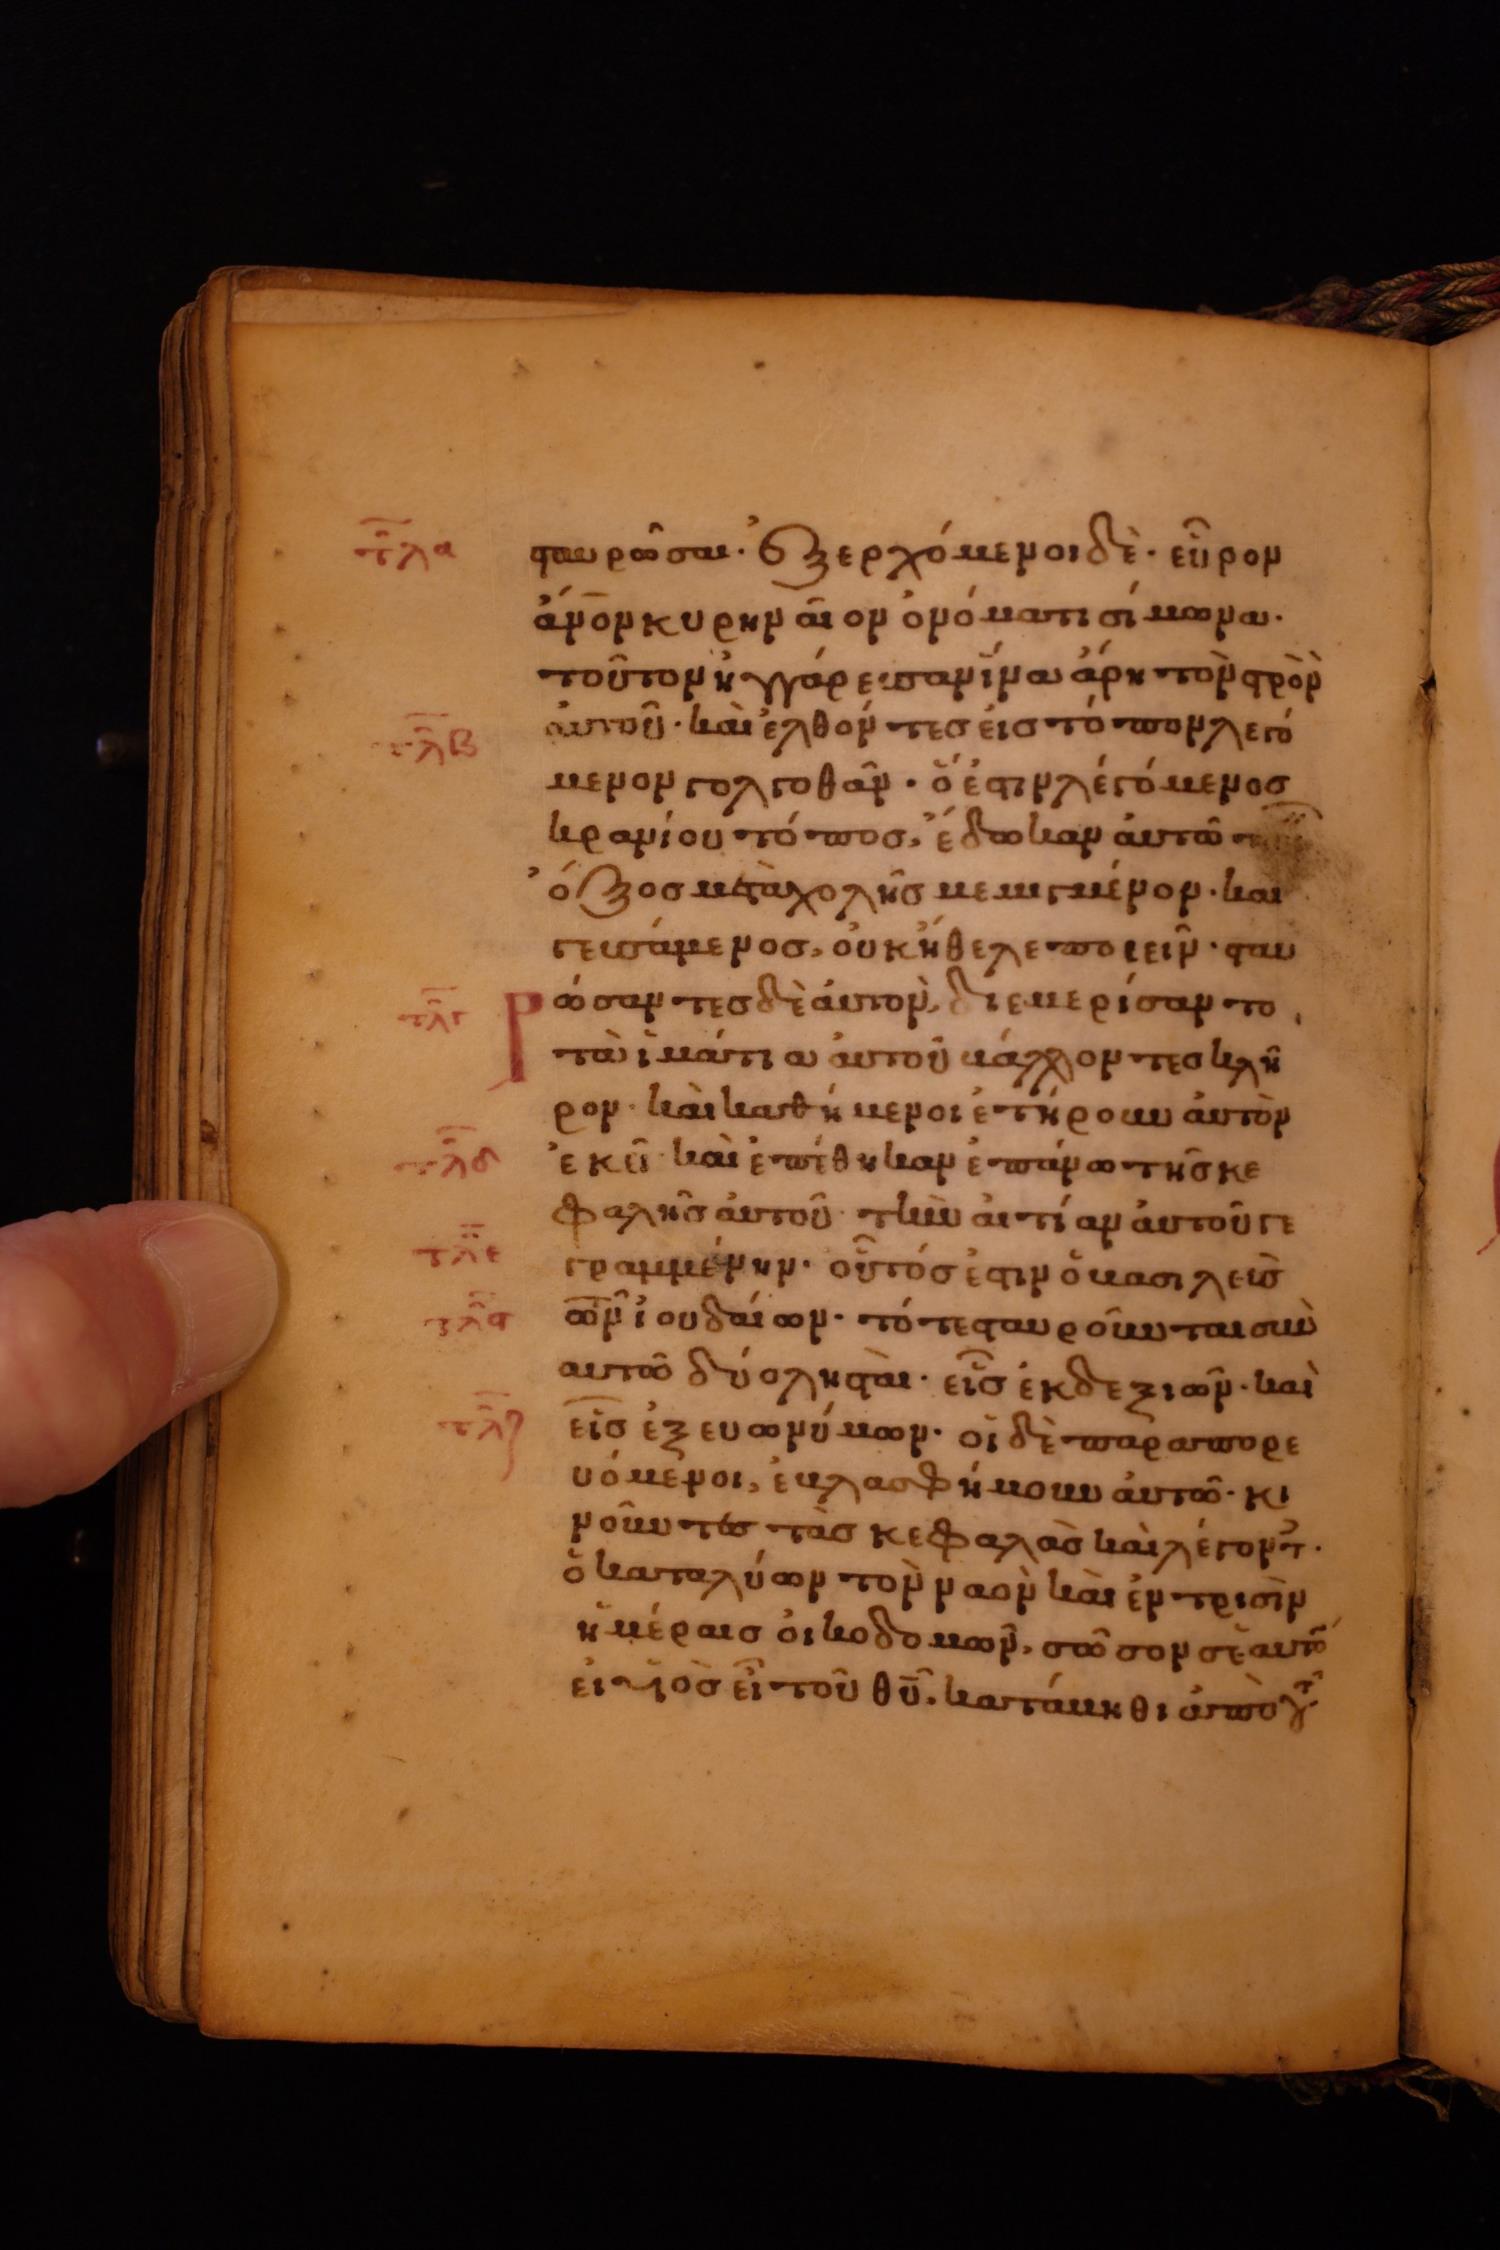 τλα σταυρῶσαι· Ἐξερχόμενοι δὲ· εὗρον
ἄνον κυρηναῖον ὀνόματι σίμωνα·
τοῦτον ἠγγάρευσαν ἵνα ἄρη τὸν στρὸν
τλβ αὐτοῦ· καὶ ἐλθόντες εἰς τόπον λεγό
μενον γολγοθᾶν· ὅ ἐστιν λεγόμενος
κρανίου τόπος, ἔδωκαν αὐτῶ
ὄξος μετὰ χολῆς μεμιγμένον· και
γευσάμενος, οὐκ ἤθελε ποιεῖν· σταυ
τλγ Ρ ώσαντες δὲ ἀυτὸν, διεμερίσαντο
τὰ ἱμάτια ἀυτοῦ βάλλοντες κλῆ
ρον· καὶ καθήμενοι ἐτήρουν ἀυτὸν
τλδ ἐκεῖ· καὶ ἐπέθηκαν ἐπάνω τῆς κε
φαλῆς ἀυτοῦ· τὴν ἀιτίαν ἀυτοῦ γε
τλε γραμμένην· οὗτός ἐστιν ὁ βασιλεὺς
τλς τῶν ἰουδαίων· τότε σταυροῦνται σὺν
αυτῶ δύο λησταὶ· εἷς ἐκ δεξιῶν· καὶ
τλζ εἷς ἐξ ευωνύμων· οἱ δὲ παραπορε
υόμενοι, ἐβλασφήμουν ἀυτῶ· κι
νοῦντες τὰς κεφαλὰς καὶ λέγοντ·
ὁ καταλύων τὸν ναὸν καὶ ἐν τρισὶν
ἡμέραις ὀικοδομῶν, σῶσον σεαυτὸ
εἰ υἱὸς εἶ τοῦ θῦ· κατάβηθι ἀπὸ τ